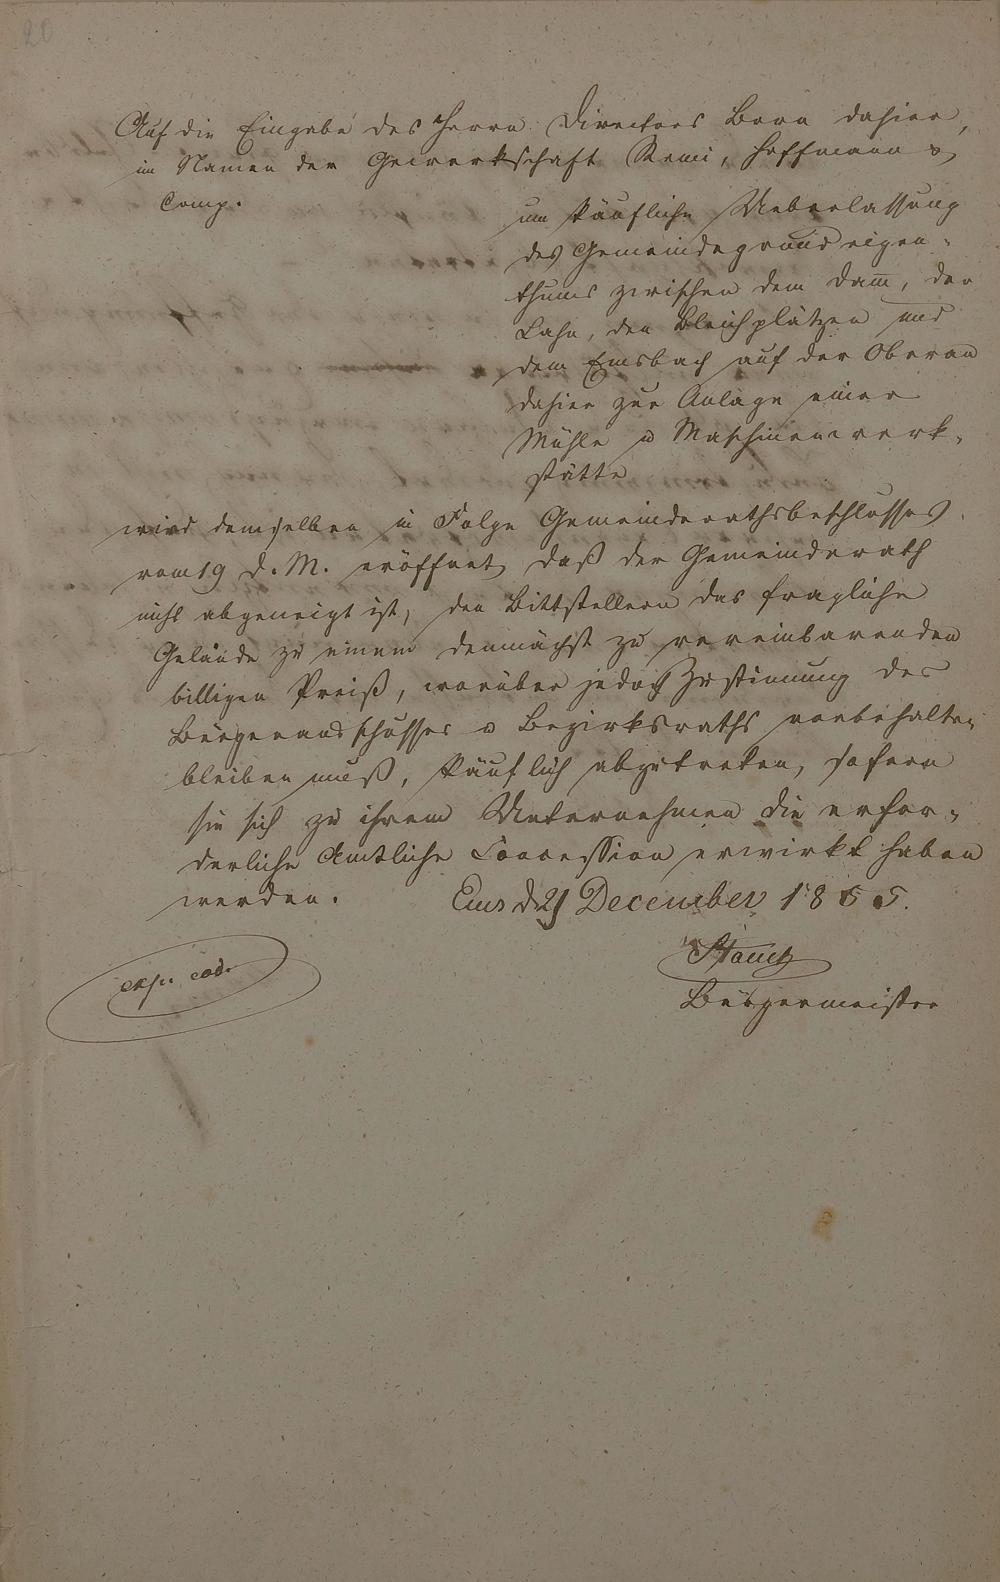 20
Auf die Eingabe des Herrn Directors Born dahier,
im Namen der Gewerkschaft Remi, Hoffmann &
Comp.
um käufliche Ueberlassung
des Gemeindegrundeigen-
thums zwischen dem Dam̅, der
Lahn, den Bleichplätzen und
dem Emsbach auf der Oberau
dahier zur Anlage einer
Mühle u Maschinenwerk-
stätte
wird demselben in Folge Gemeinderathsbeschlusses
vom 19 d. M. eröffnet, daß der Gemeinderath
nicht abgeneigt ist, den Bittstellern das fragliche
Gelände zu einem demnächst zu vereinbarenden
billigen Preiß, worüber jedoch Zustimmung des
Bürgerausschusses u Bezirksraths vorbehalten
bleiben muß, käuflich abzutreten, sofern
sie sich zu ihrem Unternehmen die erfor-
derliche Amtliche Concession erwirkt haben
werden.
Ems d 21 December 1855.
exp. eod.
Bürgermeister